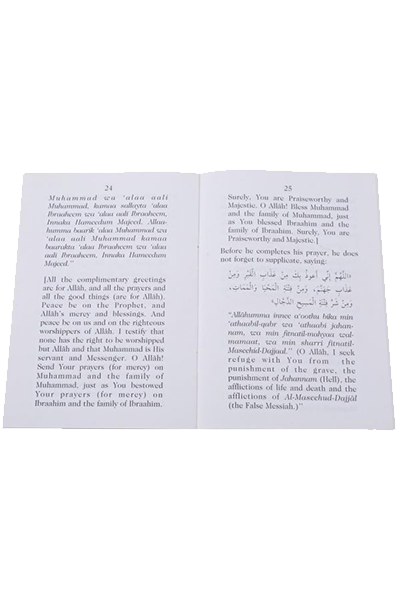 24
Muhammad wa 'alaa aali
Muhammad, kamaa sallayta 'alaa
Ibraaheem wa 'alaa aali Ibraaheem,
Innaka Hameedum Majeed. Allaa-
humma baarik 'alaa Muhammad wa
'alaa aali Muhammad kamaa
baarakta 'alaa Ibraaheem wa 'alaa
aali Ibraaheem, Innaka Hameedum
Majeed."
[All the complimentary greetings
are for Allâh, and all the prayers and
all the good things (are for Allâh).
Peace be on the Prophet, and
Allâh's mercy and blessings. And
peace be on us and on the righteous
worshippers of Allâh. I testify that
none has the right to be worshipped
but Allâh and that Muhammad is His
servant and Messenger. O Allâh!
Send Your prayers (for mercy) on
Muhammad and the family of
Muhammad, just as You bestowed
Your prayers (for mercy) on
Ibraahim and the family of Ibraahim.
25
Surely, You are Praiseworthy and
Majestic. O Allâh! Bless Muhammad
and the family of Muhammad, just
as You blessed Ibraahim and the
family of Ibraahim. Surely, You are
Praiseworthy and Majestic.]
Before he completes his prayer, he does
not forget to supplicate, saying:
«اللَّهُمَّ إِنِّي أَعُوذُ بِكَ مِنْ عَذَابِ الْقَبْرِ وَمِنْ
عَذَابِ جَهَنَّمَ، وَمِنْ فِتْنَةِ الْمَحْيَا وَالْمَمَاتِ،
وَمِنْ شَرِّ فِتْنَةِ الْمَسِيحِ الدَّجَّالِ»
"Allâhumma innee a'oothu bika min
'athaabil-qabr wa 'athaabi jahan-
nam, wa min fitnatil-mahyaa wal-
mamaat, wa min sharri fitnatil-
Maseehid-Dajjaal." (O Allâh, I seek
refuge with You from the
punishment of the grave, the
punishment of Jahannam (Hell), the
afflictions of life and death and the
afflictions of Al-Maseehud-Dajjâl
(the False Messiah.)"